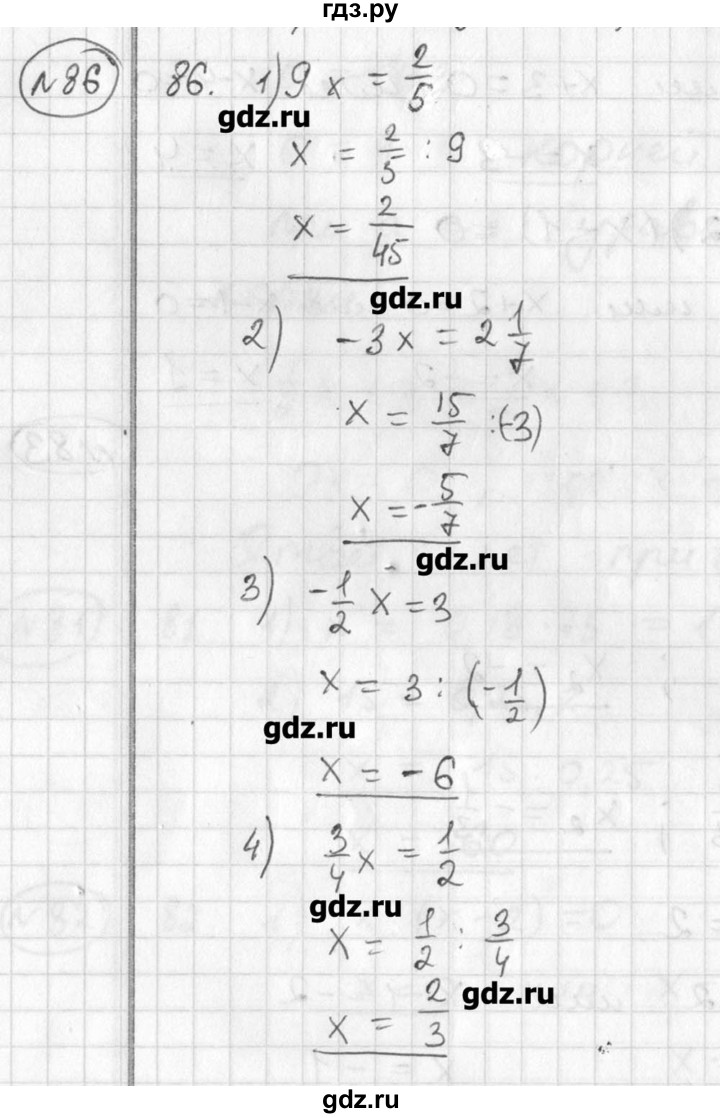 гдз.ру
№86
86. 1) 9x = 2/5
gdz.ru
x = 2/5 : 9
x = 2/45
gdz.ru
2) -3x = 2 1/7
x = 15/7 : (-3)
x = -5/7
gdz.ru
3) -1/2 x = 3
x = 3 : (-1/2)
gdz.ru
x = -6
4) 3/4 x = 1/2
gdz.ru
x = 1/2 : 3/4
gdz.ru
x = 2/3
gdz.ru